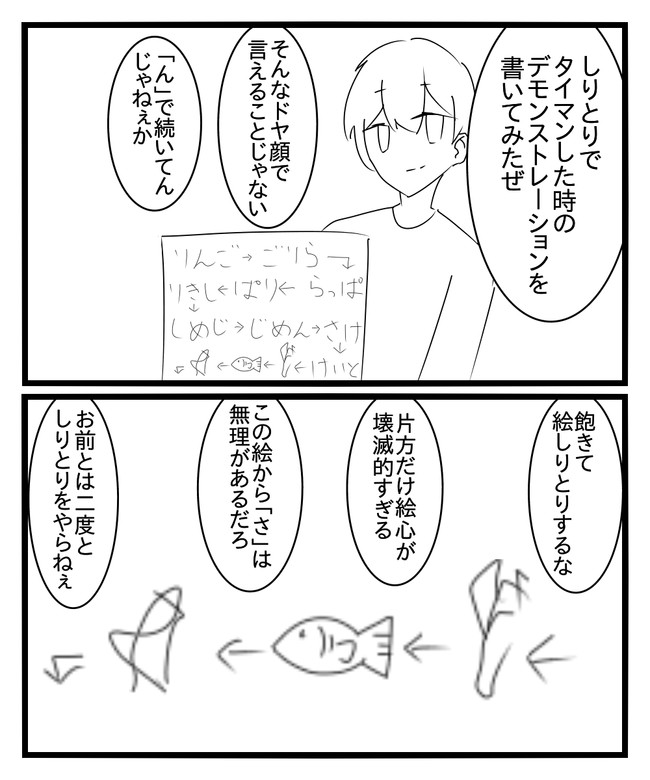 しりとりで
タイマンした時の
デモンストレーションを
書いてみたぜ
そんなドヤ顔で
言えることじゃない
「ん」で続いてん
じゃねぇか
りんご→ごりら
りきし←ぱり←らっぱ
しめじ→じめん→さけ
←けいと
飽きて
絵しりとりするな
片方だけ絵心が
壊滅的すぎる
この絵から「さ」は
無理があるだろ
お前とは二度と
しりとりをやらねぇ